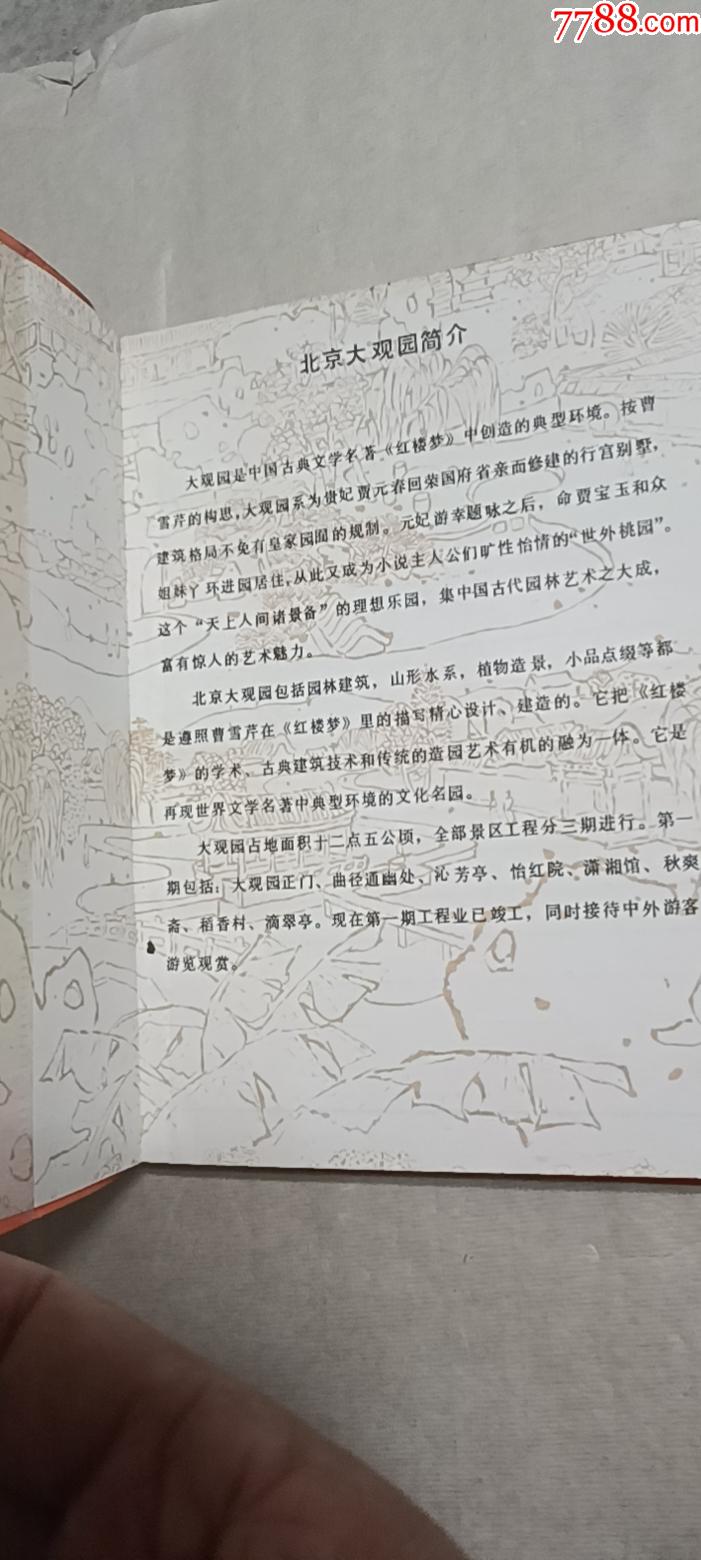 7788.com
北京大观园简介
大观园是中国古典文学名著《红楼梦》中创造的典型环境。按曹
雪芹的构思，大观园系为贵妃贾元春回荣国府省亲而修建的行宫别墅，
建筑格局不免有皇家园囿的规制。元妃游幸题咏之后，命贾宝玉和众
姐妹丫环进园居住，从此又成为小说主人公们旷性怡情的“世外桃园”。
这个“天上人间诸景备”的理想乐园，集中国古代园林艺术之大成，
富有惊人的艺术魅力。
北京大观园包括园林建筑，山形水系，植物造景，小品点缀等都
是遵照曹雪芹在《红楼梦》里的描写精心设计、建造的。它把《红楼
梦》的学术、古典建筑技术和传统的造园艺术有机的融为一体。它是
再现世界文学名著中典型环境的文化名园。
大观园占地面积十二点五公顷，全部景区工程分三期进行。第一
期包括：大观园正门、曲径通幽处、沁芳亭、怡红院、潇湘馆、秋爽
斋、稻香村、滴翠亭。现在第一期工程业已竣工，同时接待中外游客
游览观赏。